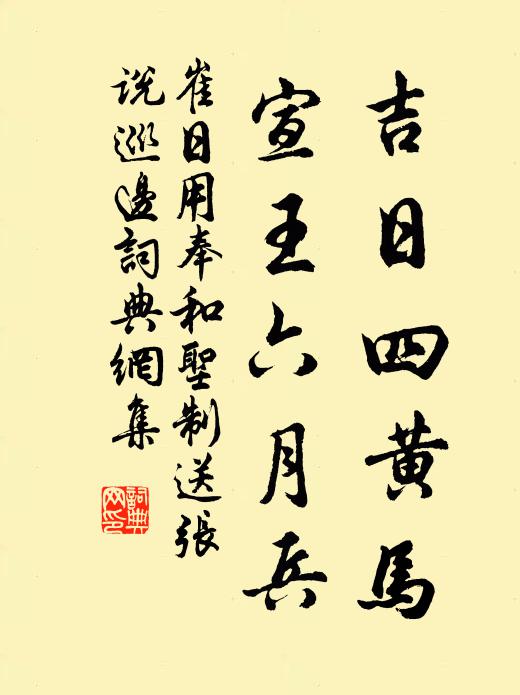 吉日四黄馬
宣王六月兵
崔日用奉和聖制送張
説巡邊詞典網集
詞典
网印